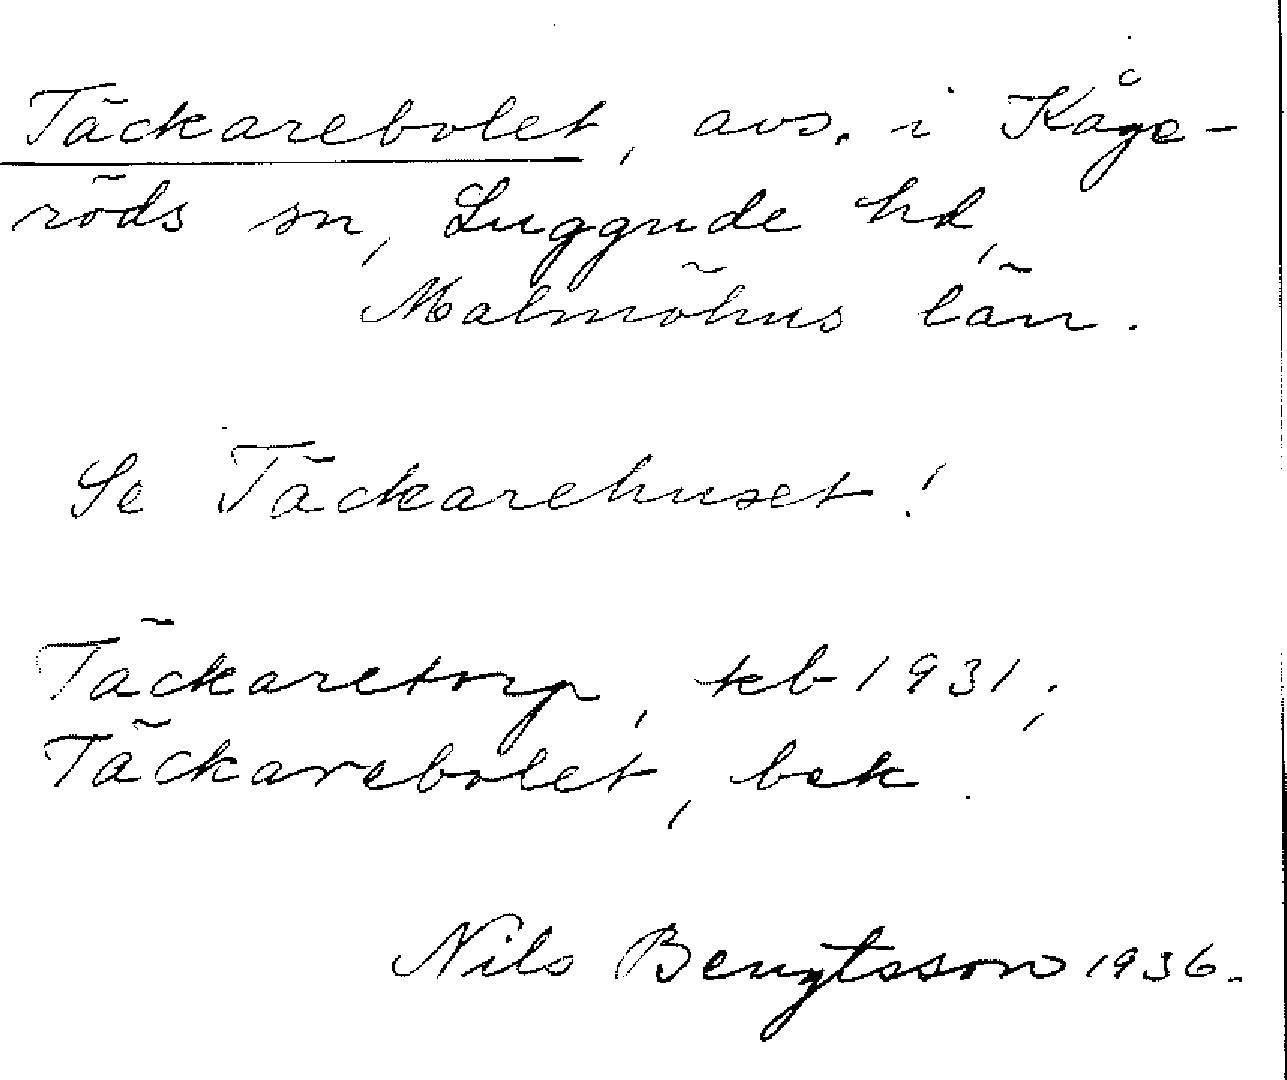 Täckarebolet, avs. i Kåge-
röds sn, Luggude hd,
Malmöhus län.
Se Täckarehuset!
Täckaretorp, kb 1931;
Täckarebolet, bek.
Nils Bengtsson 1936.